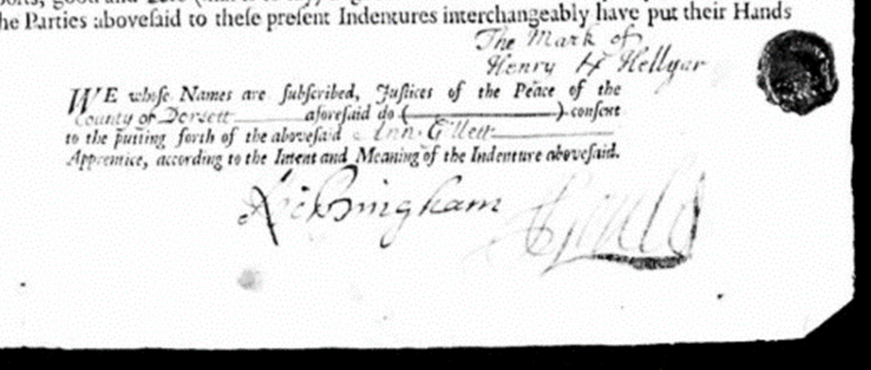 good and
he Parties aboveſaid to theſe preſent Indentures interchangeably have put their Hands
The Mark of
Henry H Hellyar
WE whoſe Names are ſubſcribed, Juſtices of the Peace of the
County of Dorsett aforeſaid do ( ) conſent
to the putting forth of the aboveſaid Ann Gillett
Apprentice, according to the Intent and Meaning of the Indenture aboveſaid.
Ric Bingham